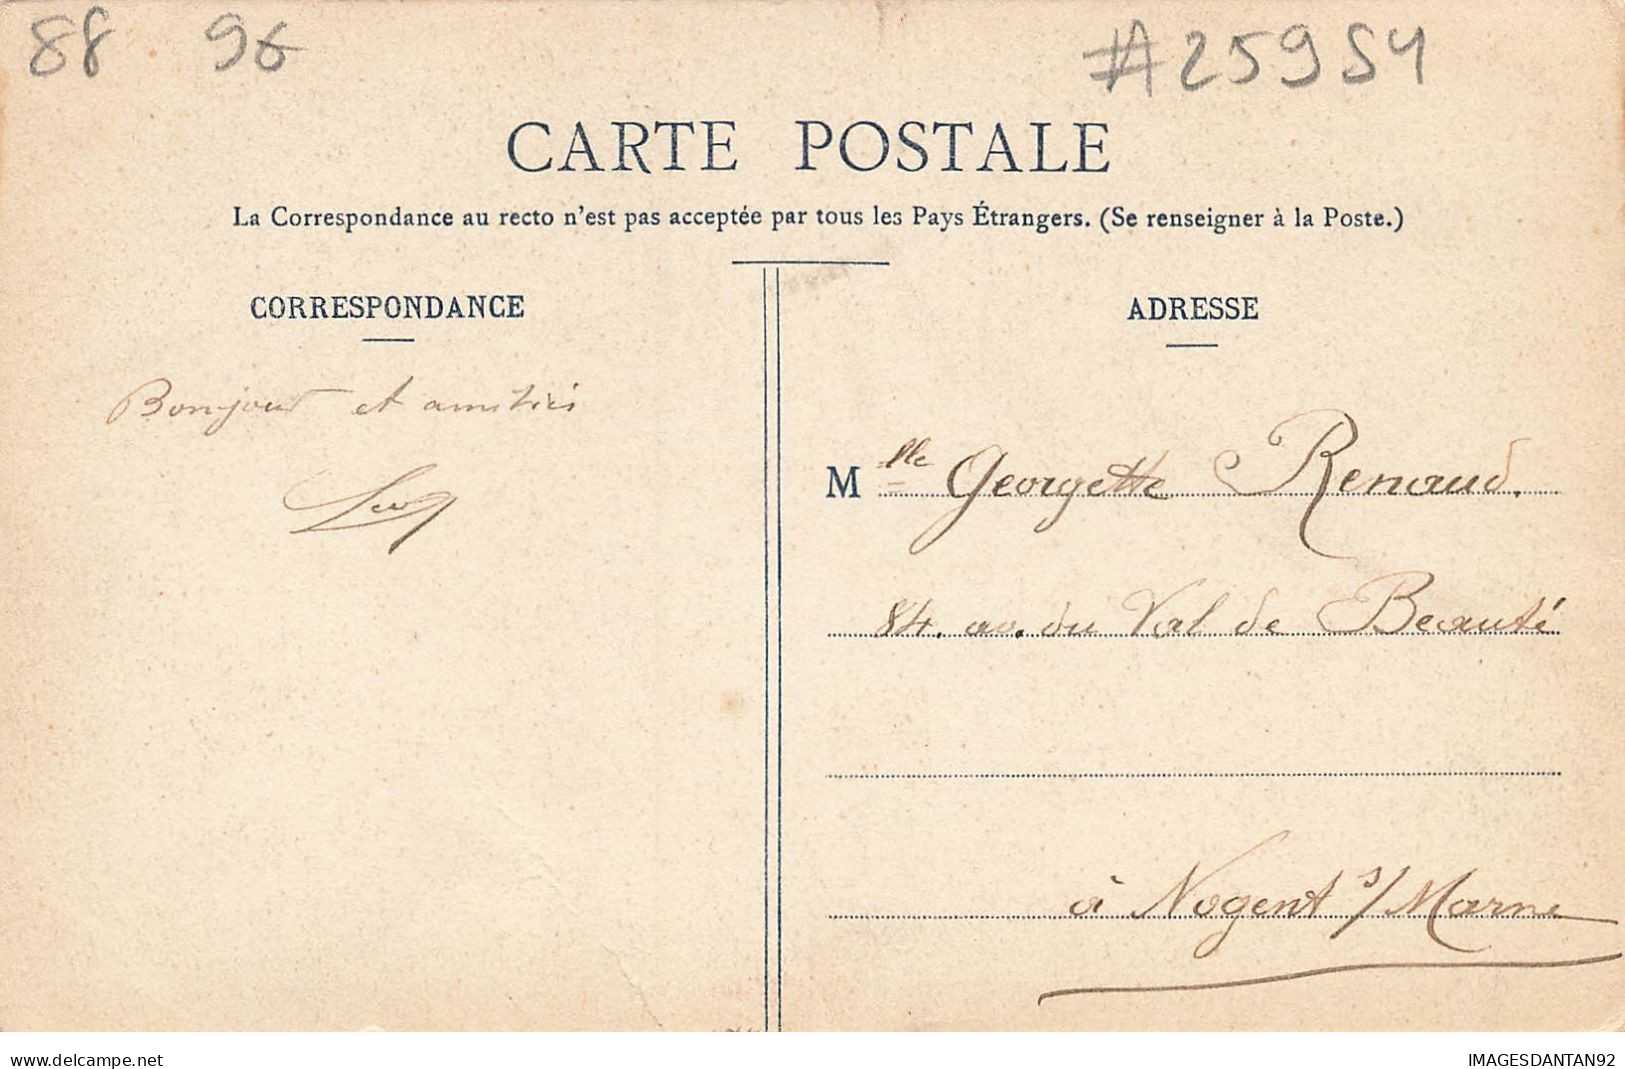 88 96 #25954
CARTE POSTALE
La Correspondance au recto n'est pas acceptée par tous les Pays Étrangers. (Se renseigner à la Poste.)
CORRESPONDANCE
Bonjour et amitiés
ADRESSE
Mlle Georgette Renaud.
84. av. du Val de Beauté
à Nogent s/Marne
www.delcampe.net
IMAGESDANTAN92